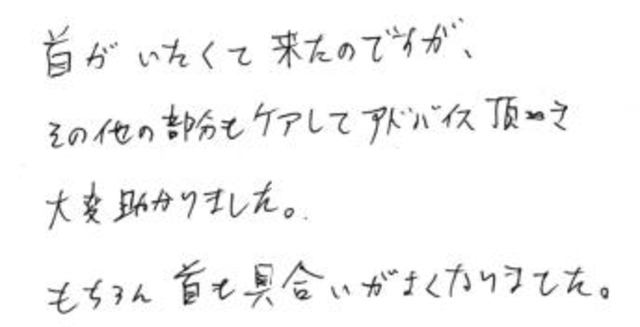 首がいたくて来たのですが、
その他の部分もケアしてアドバイス頂き
大変助かりました。
もちろん首も具合いがよくなりました。